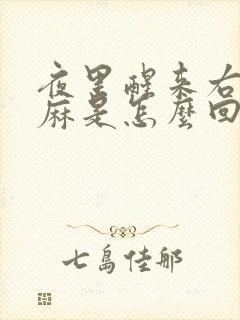 夜里醒来右
麻是怎麼回
七島佳那